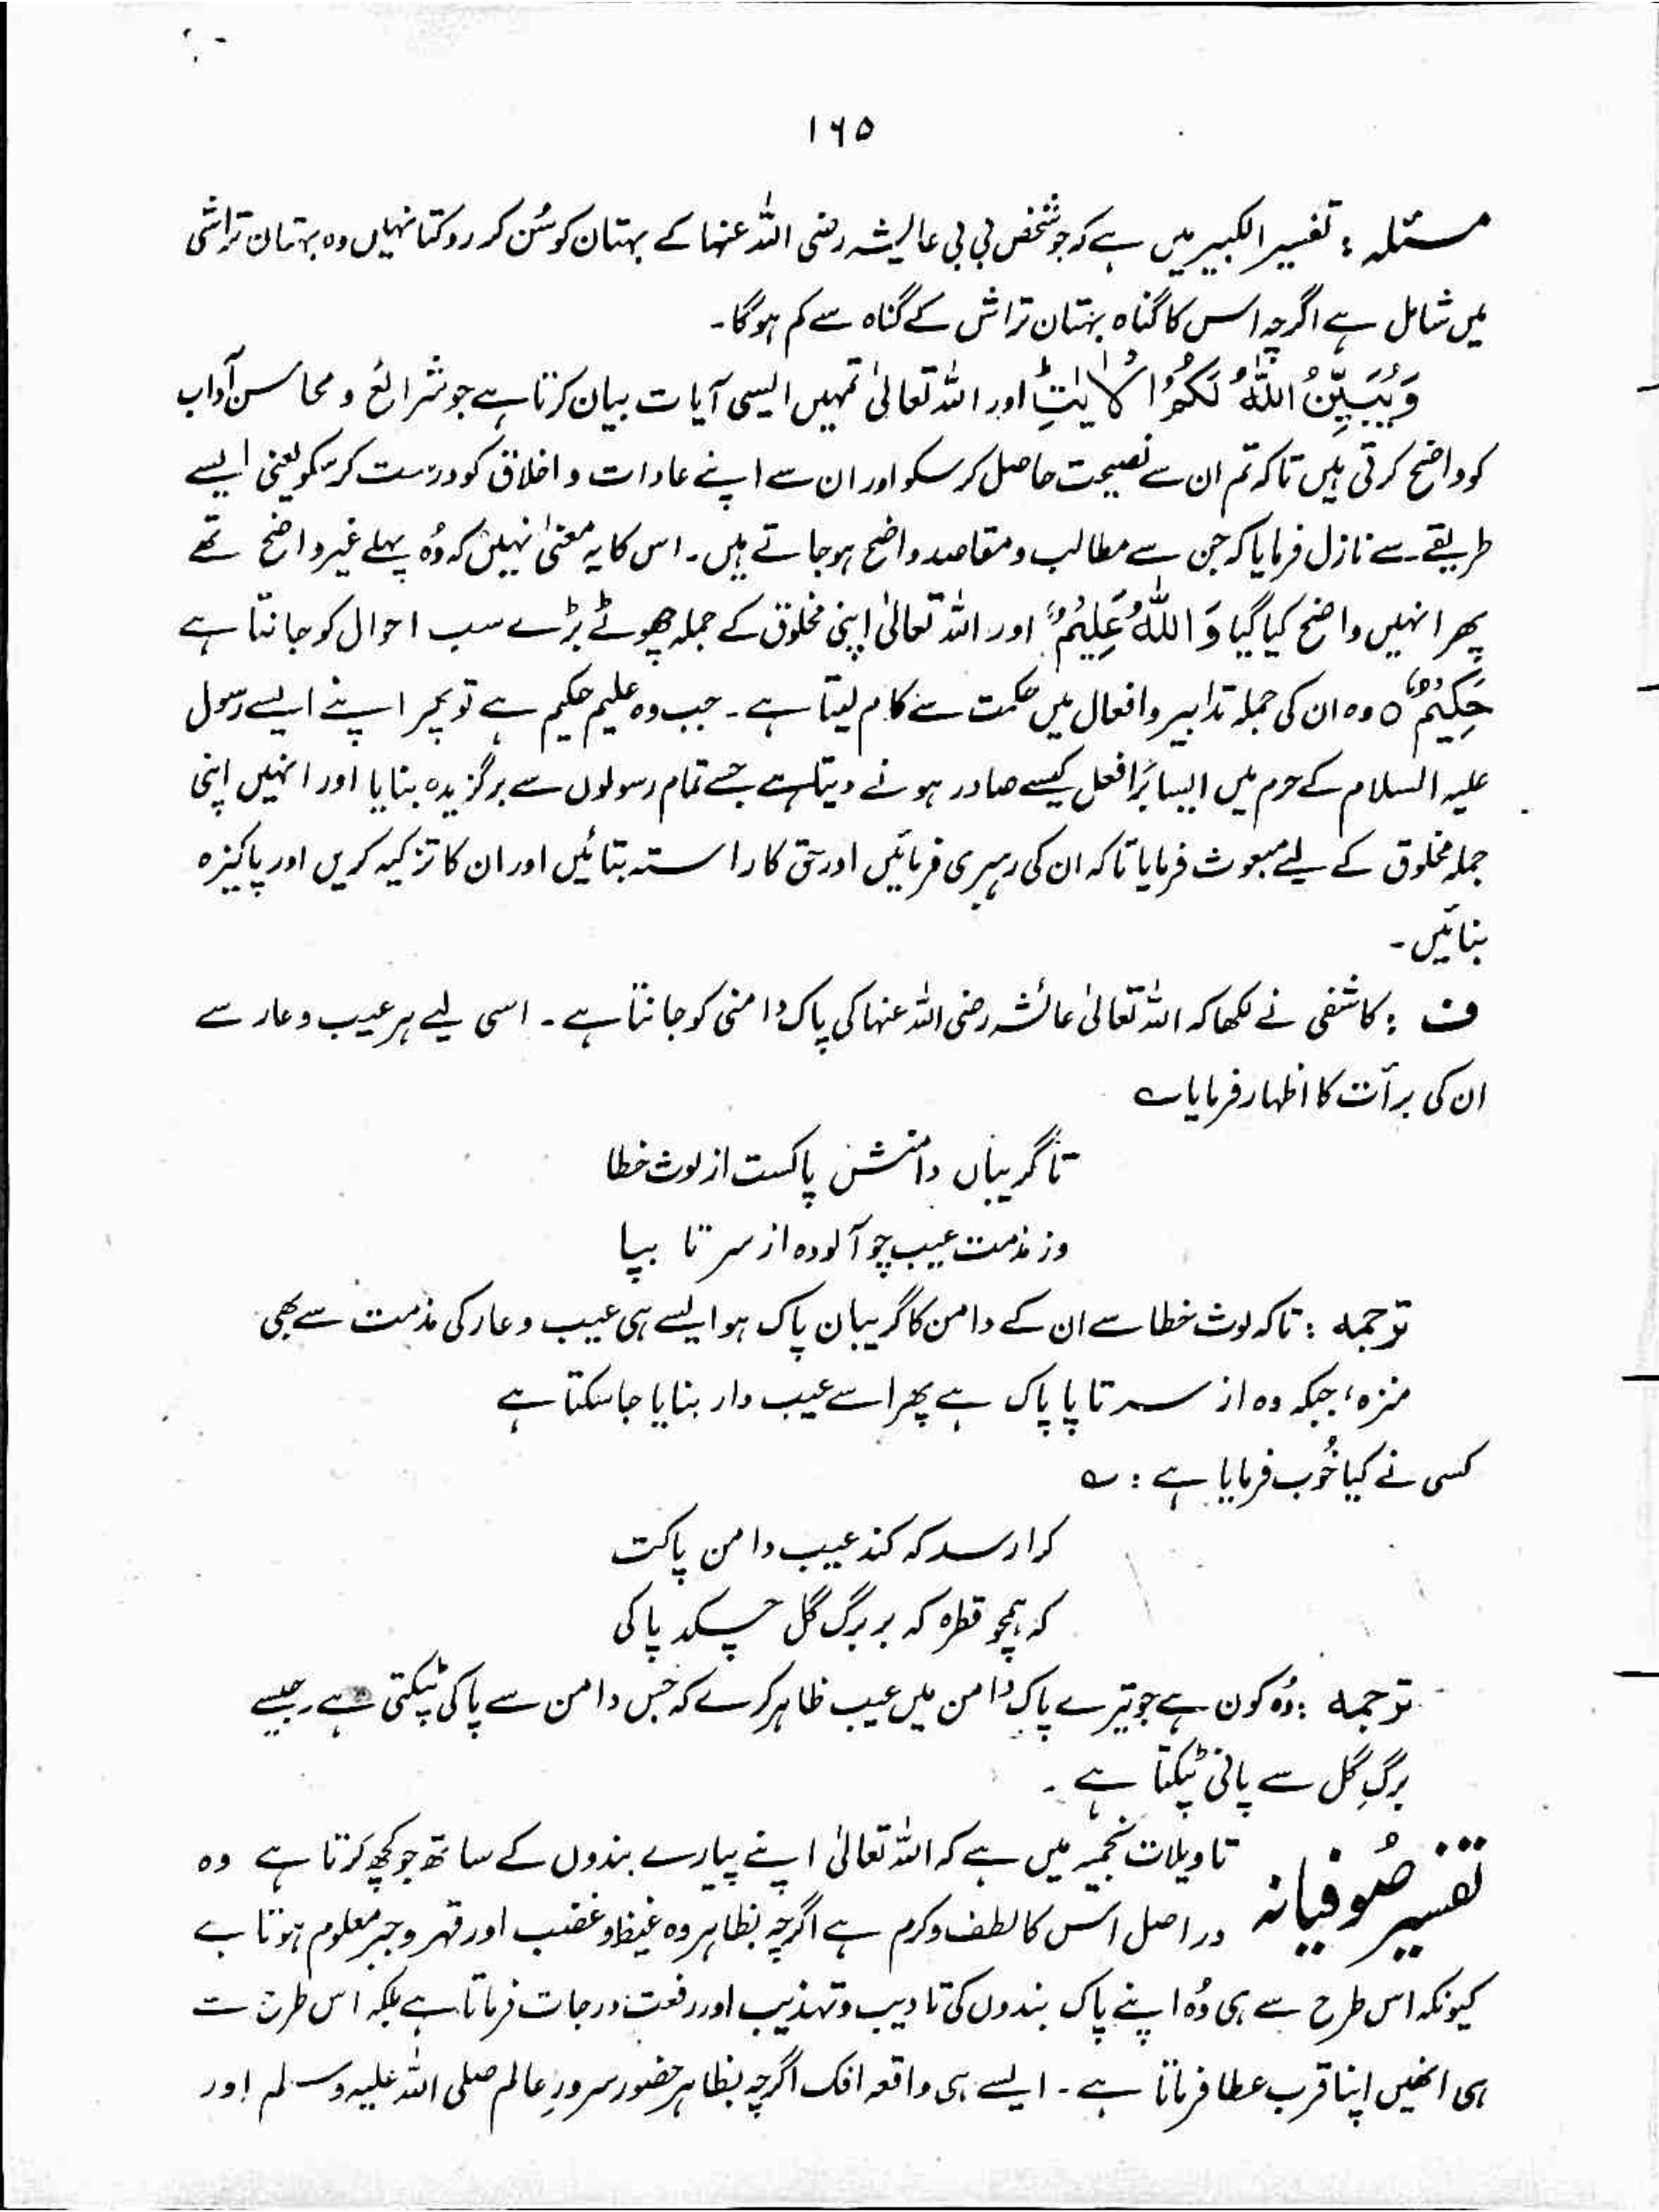 ۱۶۵
مسئلہ : تفسیر الکبیر میں ہے کہ جو شخص بی بی عایشہ رضی اللہ عنہا کے بہتان کو سُن کر روکتا نہیں وہ بہتان تراشی
میں شامل ہے اگرچہ اس کا گناہ بہتان تراش کے گناہ سے کم ہوگا۔
وَیُبَیِّنُ اللّٰہُ لَکُمُ الْاٰیٰتِ ؕ اور اللہ تعالیٰ تمہیں ایسی آیات بیان کرتا ہے جو شرائع و محاسن آداب
کو واضح کرتی ہیں تاکہ تم ان سے نصیحت حاصل کر سکو اور ان سے اپنے عادات و اخلاق کو درست کر سکو یعنی ایسے
طریقے سے نازل فرمایا کہ جن سے مطالب و مقاصد واضح ہو جاتے ہیں۔ اس کا یہ معنیٰ نہیں کہ وُہ پہلے غیر واضح تھے
پھر انہیں واضح کیا گیا وَ اللّٰہُ عَلِیْمٌ اور اللہ تعالیٰ اپنی مخلوق کے جملہ چھوٹے بڑے سب احوال کو جانتا ہے
حَکِیْمٌ ○ وہ ان کی جملہ تدابیر و افعال میں حکمت سے کام لیتا ہے۔ جب وہ علیم حکیم ہے تو پھر اپنے ایسے رسول
علیہ السلام کے حرم میں ایسا بُرا فعل کیسے صادر ہونے دیتا ہے جسے تمام رسولوں سے برگزیدہ بنایا اور انہیں اپنی
جملہ مخلوق کے لیے مبعوث فرمایا تاکہ ان کی رہبری فرمائیں اور حق کا راستہ بتائیں اور ان کا تزکیہ کریں اور پاکیزہ
بنائیں۔
ف : کاشفی نے لکھا کہ اللہ تعالیٰ عائشہ رضی اللہ عنہا کی پاک دامنی کو جانتا ہے۔ اسی لیے ہر عیب و عار سے
ان کی برأت کا اظہار فرمایا ؎
تا گریباں دامنش پاکست از لوث خطا
وز مذمت عیب چو آلودہ از سر تا بپا
ترجمہ : تاکہ لوث خطا سے ان کے دامن کا گریبان پاک ہو ایسے ہی عیب و عار کی مذمت سے بھی
منزہ، جبکہ وہ از سر تا پا پاک ہے پھر اسے عیب دار بنایا جا سکتا ہے
کسی نے کیا خُوب فرمایا ہے : ؎
کرا رسد کہ کند عیب دامن پاکت
کہ ہمچو قطرہ کہ بر برگ گل چسکد پاکی
ترجمہ : وُہ کون ہے جو تیرے پاک دامن میں عیب ظاہر کرے کہ جس دامن سے پاکی ٹپکتی ہے جیسے
برگِ گل سے پانی ٹپکتا ہے۔
تفسیر صُوفیانہ تاویلات نجمیہ میں ہے کہ اللہ تعالیٰ اپنے پیارے بندوں کے ساتھ جو کچھ کرتا ہے وہ
در اصل اس کا لطف و کرم ہے اگرچہ بظاہر وہ غیظ و غضب اور قہر و جبر معلوم ہوتا ہے
کیونکہ اس طرح سے ہی وُہ اپنے پاک بندوں کی تادیب و تہذیب اور رفعت درجات فرماتا ہے بلکہ اس طرح سے
ہی انھیں اپنا قرب عطا فرماتا ہے۔ ایسے ہی واقعہ افک اگرچہ بظاہر حضور سرورِ عالم صلی اللہ علیہ وسلم اور